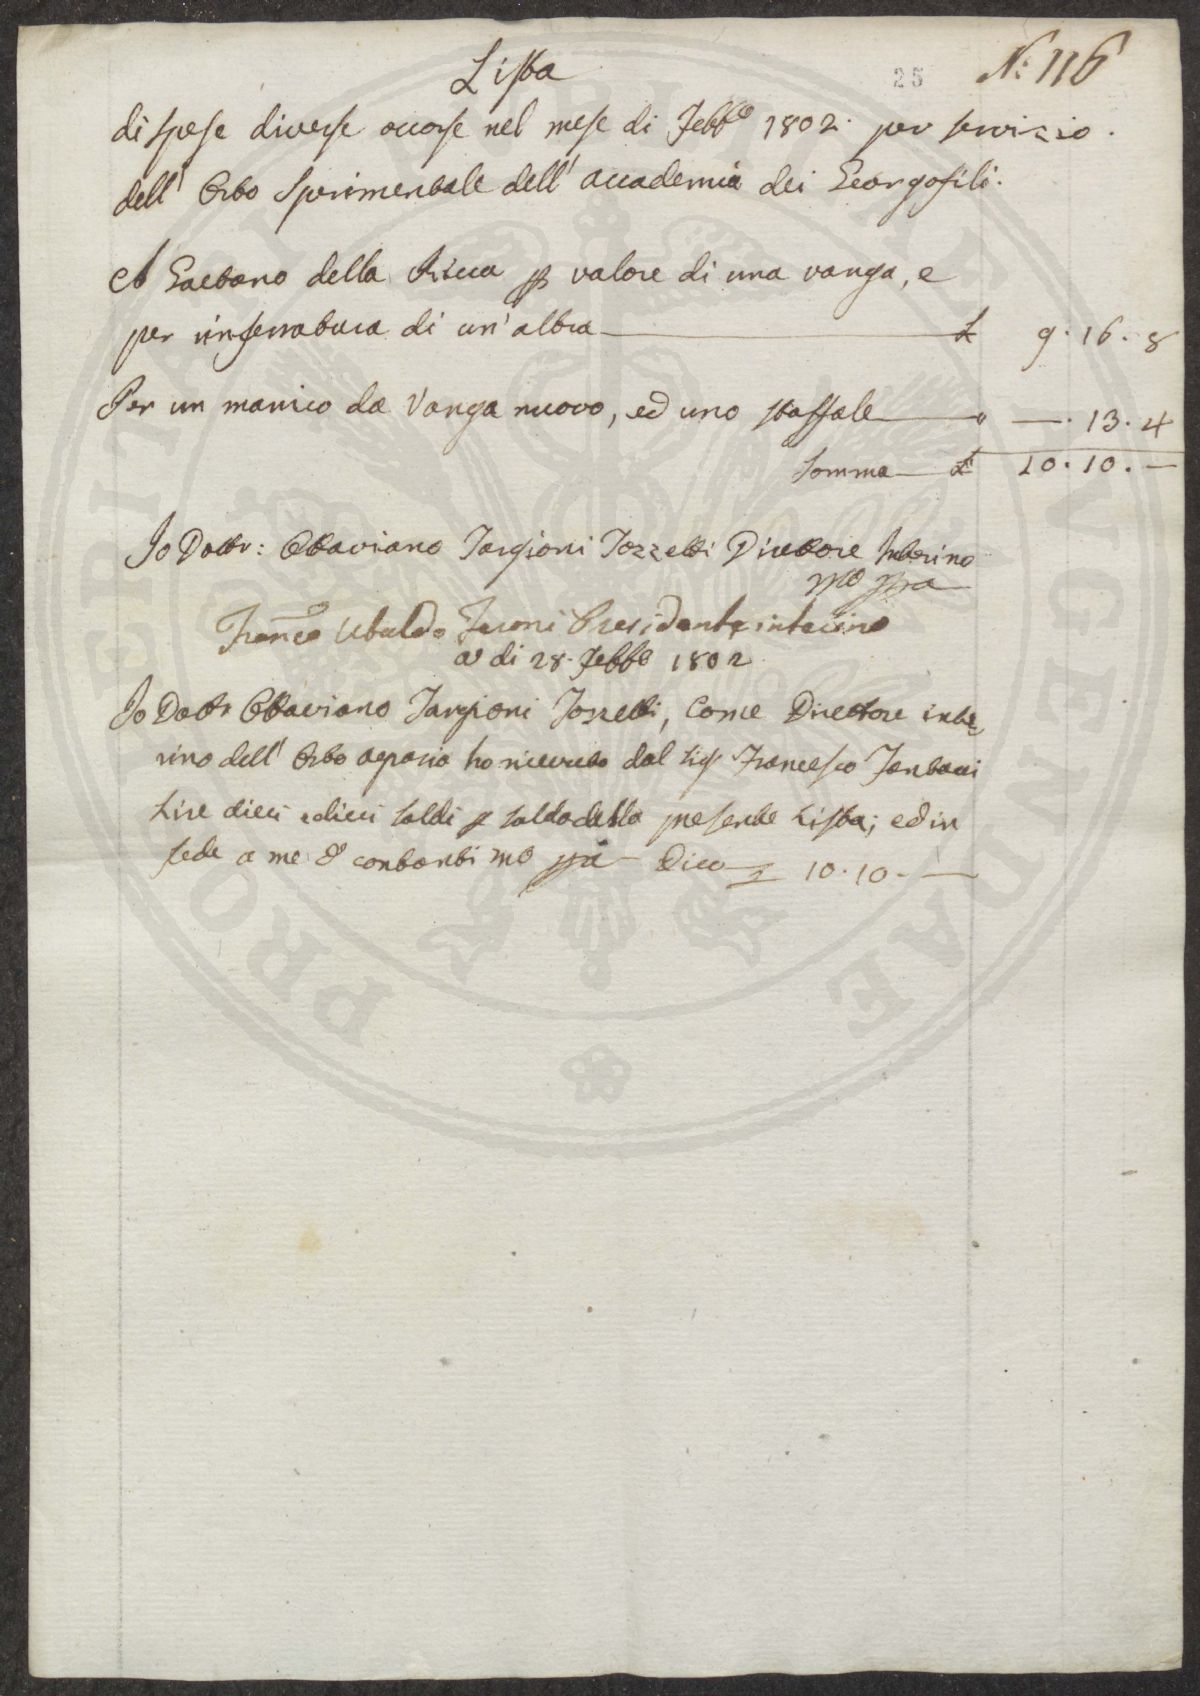 25 N.º 116
Lista
di spese diverse occorse nel mese di Febb.º 1802. per servizio
dell' Orto Sperimentale dell' accademia dei Georgofili.
A Gaetano della p valore di una vanga, e
per rinferratura di un' altra £ 9. 16. 8
Per un manico da Vanga nuovo, ed uno staffale " —. 13. 4
Somma £ 10. 10. —
Io Dottr: Ottaviano Targioni Tozzetti Direttore Interino
mo ppa
Franc.º Ubaldo Feroni Presidente interino
a di 28. Febb.º 1802
Io Dottr Ottaviano Targioni Tozzetti, Come Direttore inte=
rino dell' Orto agrario ho ricevuto dal Sig.r Francesco
Lire dieci e dieci soldi p saldo della presente Lista; ed in
fede a me contanti mo ppa Dico £ 10. 10. —
PRO PERITATI PUBLICAE AUGENDAE